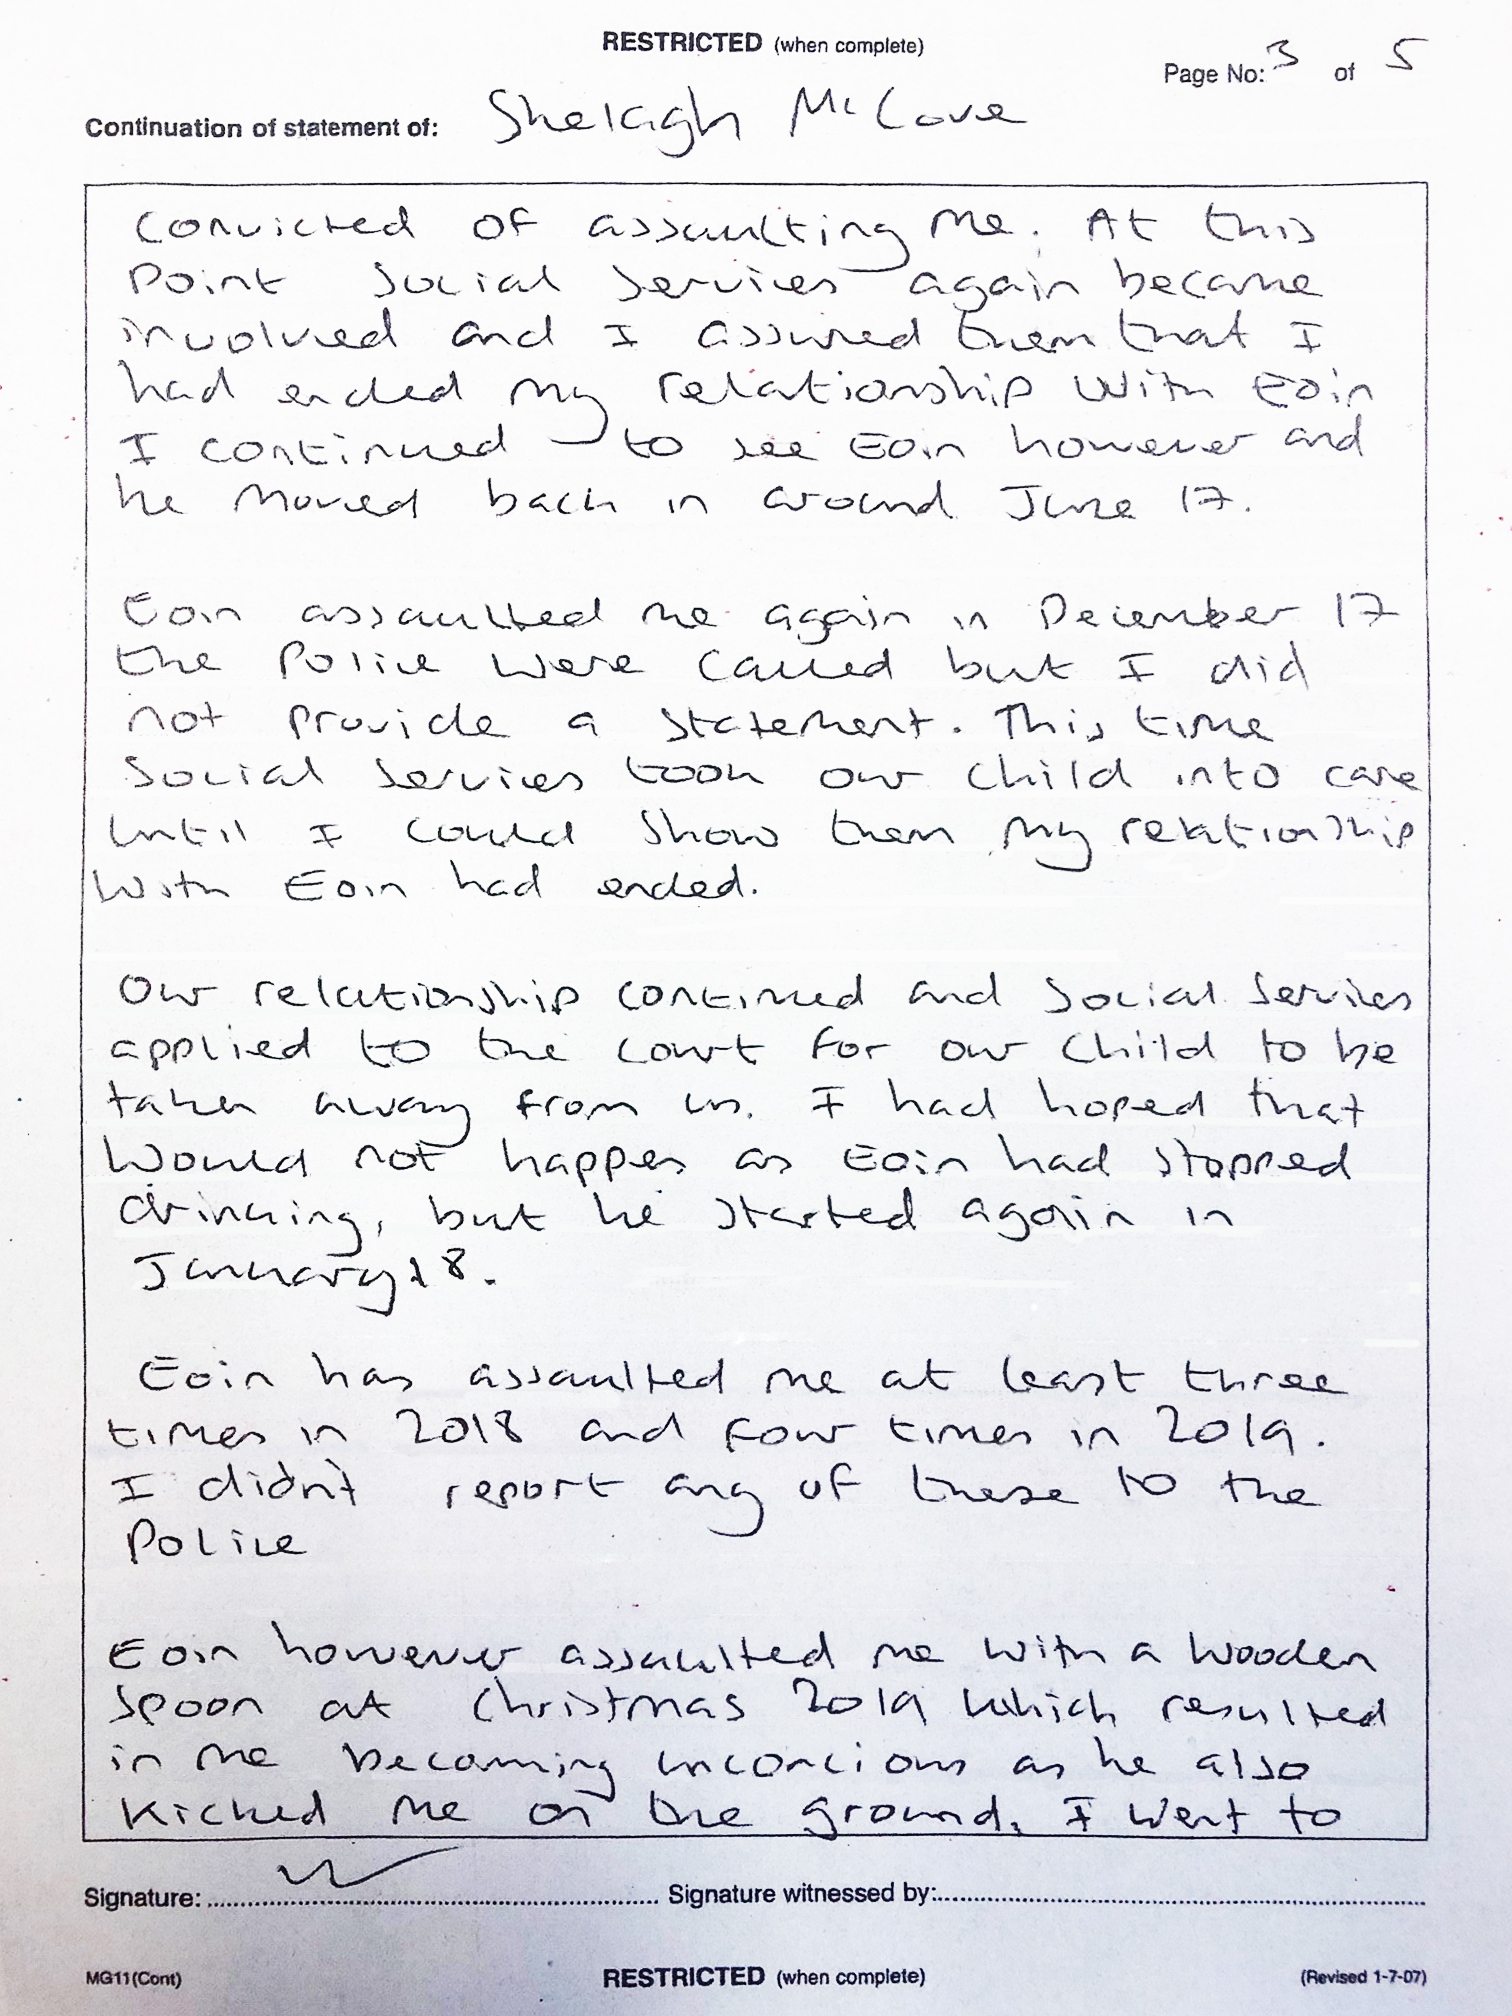 RESTRICTED (when complete)
Page No: 3 of 5
Continuation of statement of: Shelagh McCove
Convicted of assaulting me. At this
Point Social Services again became
involved and I assured them that I
had ended my relationship With Eoin
I continued to see Eoin however and
he moved back in around June 17.
Eoin assaulted me again in December 17
the Police were called but I did
not provide a statement. This time
Social Services took our child into care
Until I could show them my relationship
With Eoin had ended.
Our relationship continued and Social Services
applied to the court for our child to be
taken away from us. I had hoped that
Would not happen as Eoin had stopped
drinking, but he started again in
January 18.
Eoin has assaulted me at least three
times in 2018 and four times in 2019.
I didn't report any of these to the
Police
Eoin however assaulted me with a wooden
spoon at Christmas 2019 which resulted
in me becoming unconcious as he also
kicked me on the ground. I went to
Signature: Signature witnessed by:
MG11(Cont)
RESTRICTED (when complete)
(Revised 1-7-07)